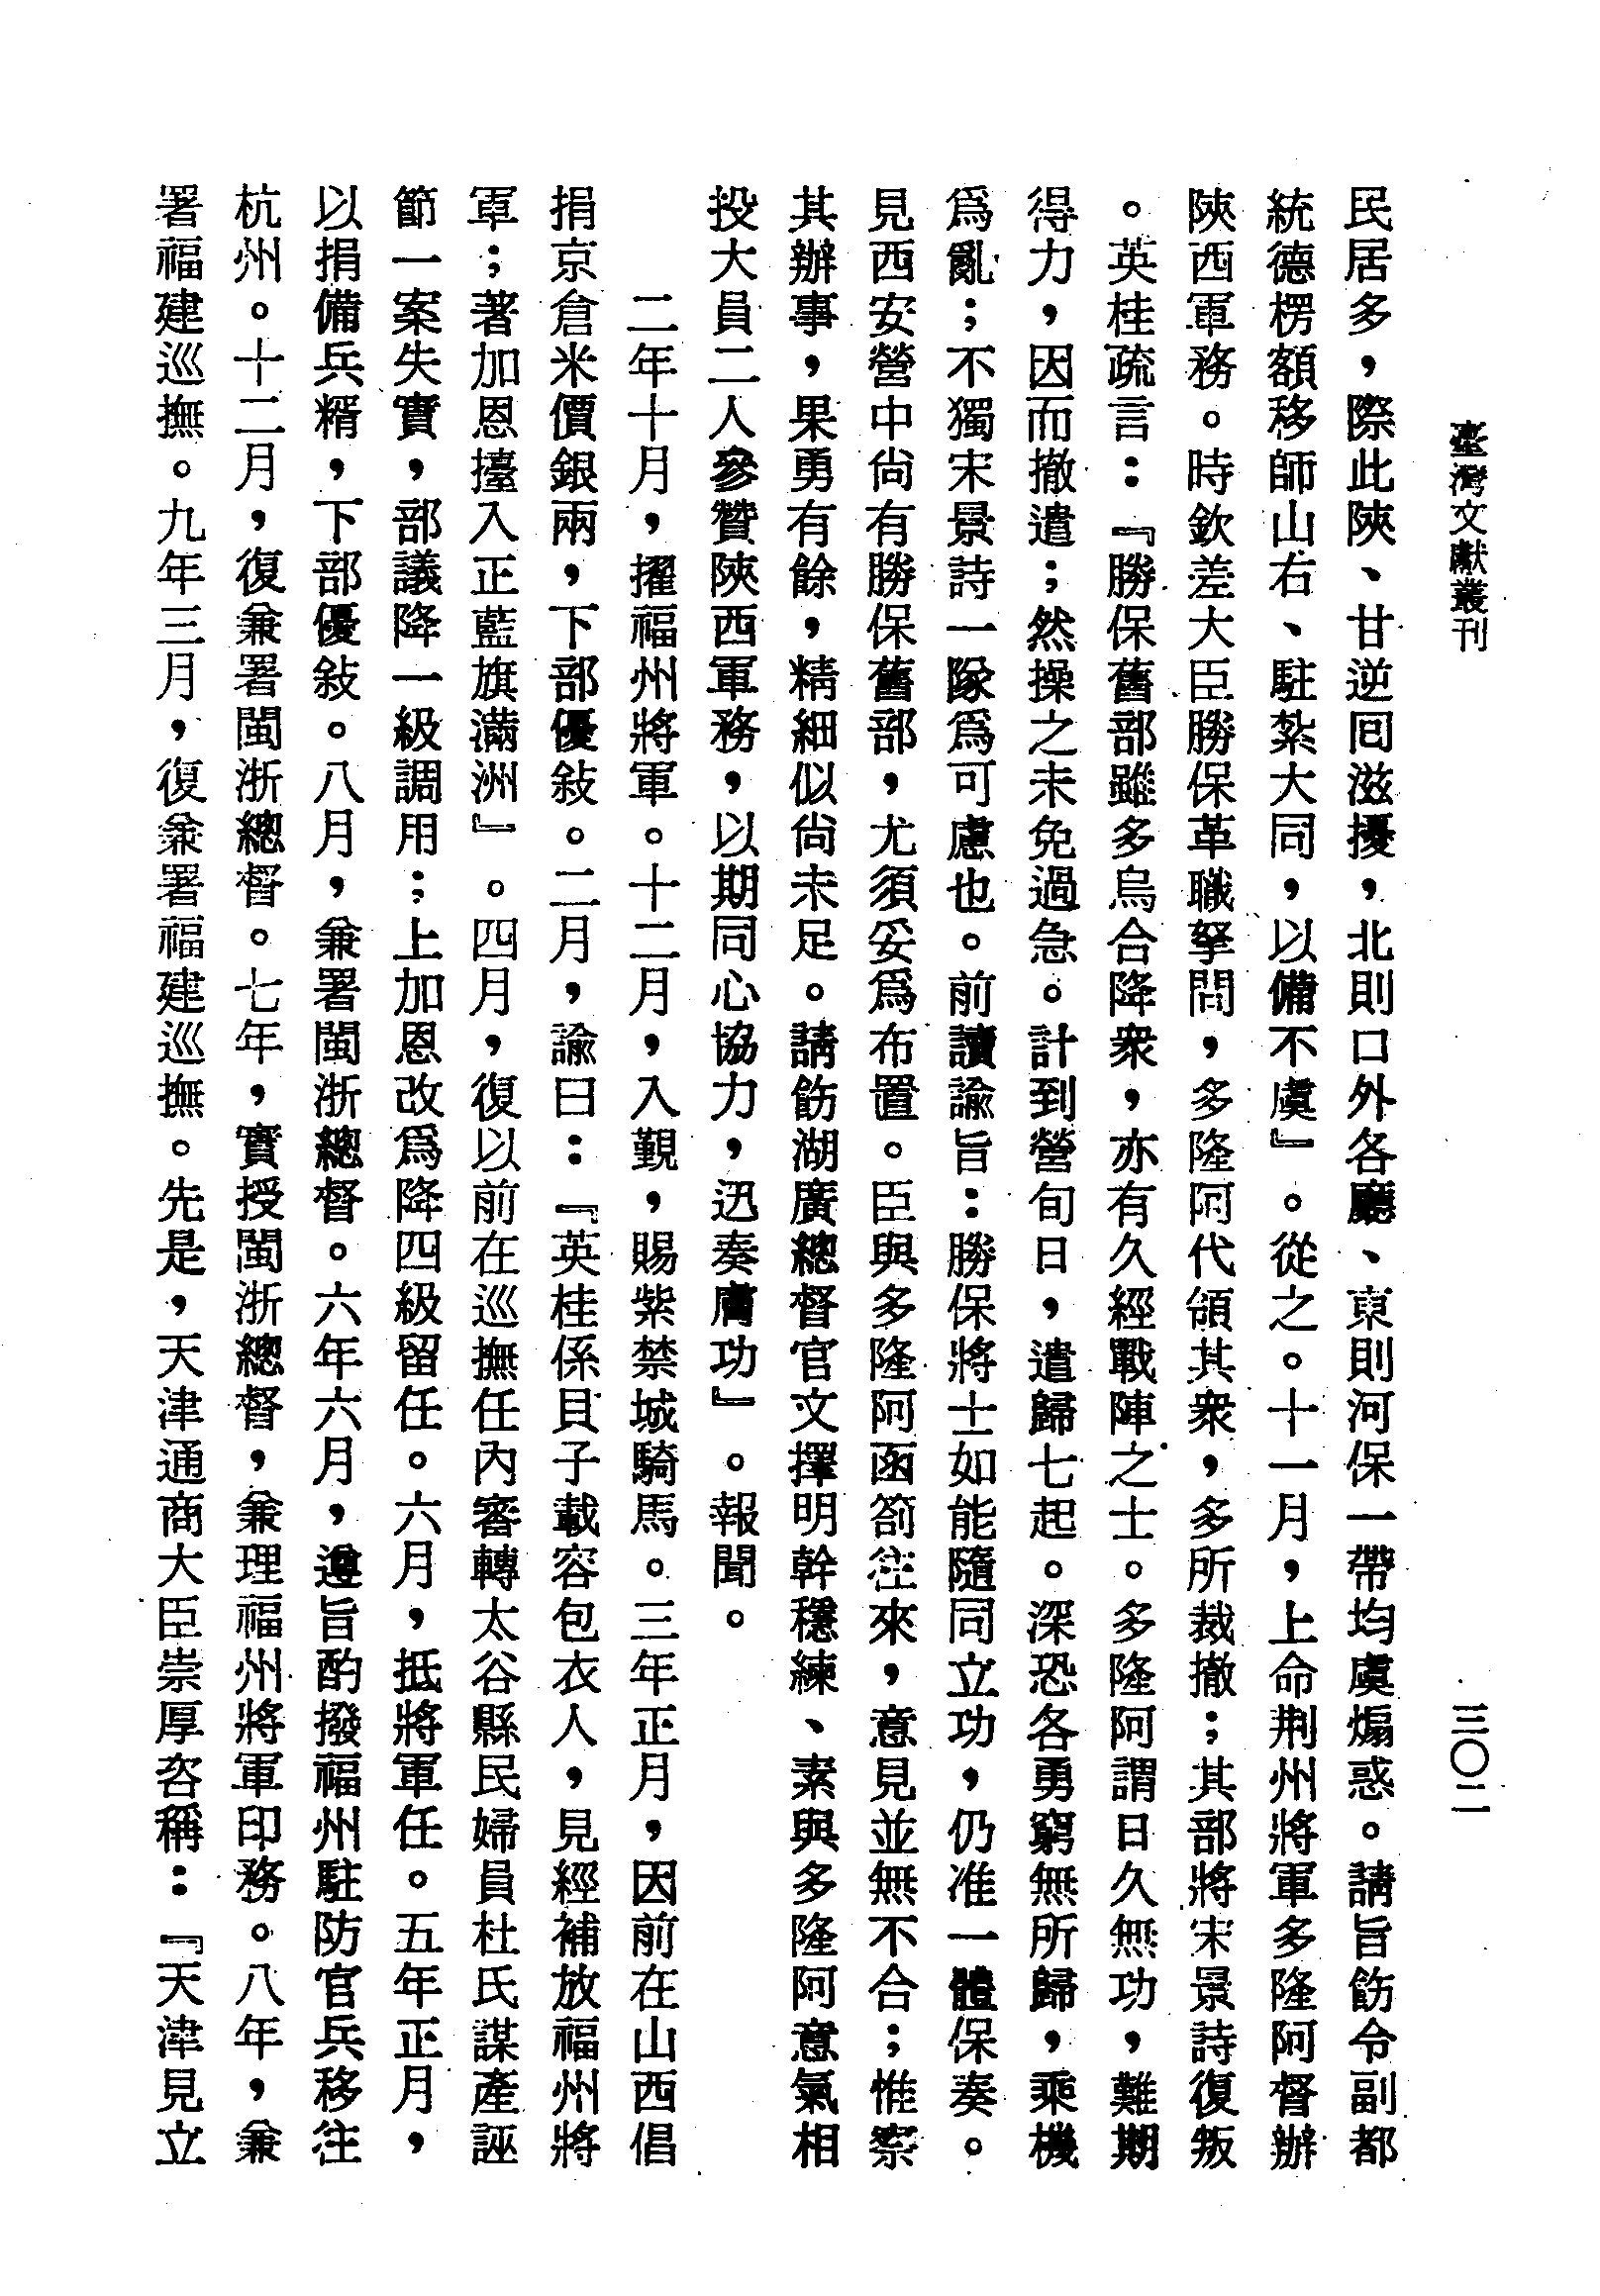 臺灣文獻叢刊
三〇二
民居多，際此陝、甘逆回滋擾，北則口外各廳、東則河保一帶均虞煽惑。請旨飭令副都
統德楞額移師山右、駐紮大同，以備不虞』。從之。十一月，上命荆州將軍多隆阿督辦
陝西軍務。時欽差大臣勝保革職拏問，多隆阿代領其衆，多所裁撤；其部將宋景詩復叛
。英桂疏言：『勝保舊部雖多烏合降衆，亦有久經戰陣之士。多隆阿謂日久無功，難期
得力，因而撤遣；然操之未免過急。計到營旬日，遣歸七起。深恐各勇窮無所歸，乘機
爲亂；不獨宋景詩一隊爲可慮也。前讀諭旨：勝保將士如能隨同立功，仍准一體保奏。
見西安營中尚有勝保舊部，尤須妥爲布置。臣與多隆阿函箚往來，意見並無不合；惟察
其辦事，果勇有餘，精細似尚未足。請飭湖廣總督官文擇明幹穩練、素與多隆阿意氣相
投大員二人參贊陝西軍務，以期同心協力，迅奏膚功』。報聞。
二年十月，擢福州將軍。十二月，入覲，賜紫禁城騎馬。三年正月，因前在山西倡
捐京倉米價銀兩，下部優敍。二月，諭曰：『英桂係貝子載容包衣人，見經補放福州將
軍；著加恩擡入正藍旗滿洲』。四月，復以前在巡撫任內審轉太谷縣民婦員杜氏謀產誣
節一案失實，部議降一級調用；上加恩改爲降四級留任。六月，抵將軍任。五年正月，
以捐備兵糈，下部優敍。八月，兼署閩浙總督。六年六月，遵旨酌撥福州駐防官兵移往
杭州。十二月，復兼署閩浙總督。七年，實授閩浙總督，兼理福州將軍印務。八年，兼
署福建巡撫。九年三月，復兼署福建巡撫。先是，天津通商大臣崇厚咨稱：『天津見立